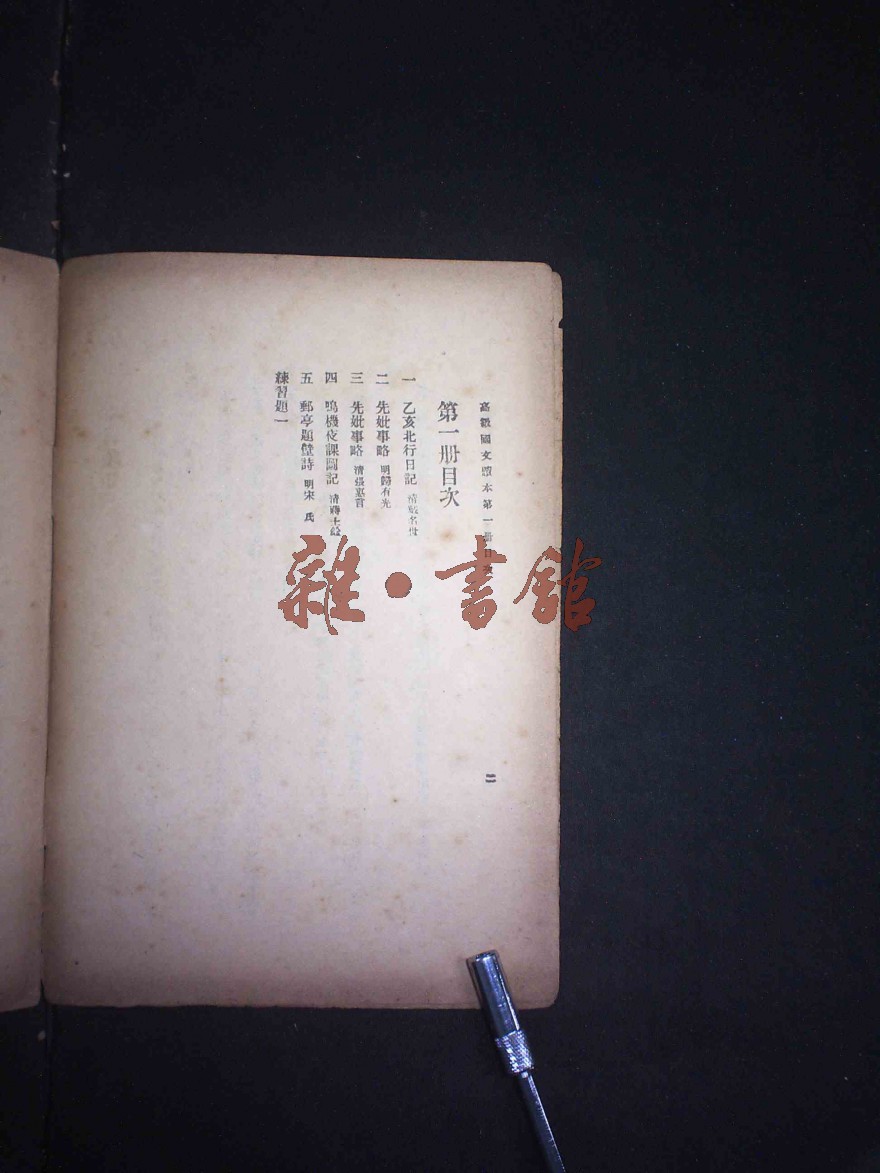 高級國文讀本第一册目次
二
第一册目次
一 乙亥北行日記 清戴名世
二 先妣事略 明歸有光
三 先妣事略 清張惠言
四 鳴機夜課圖記 清蔣士銓
五 郵亭題壁詩 明宋氏
練習題一
雜·書館